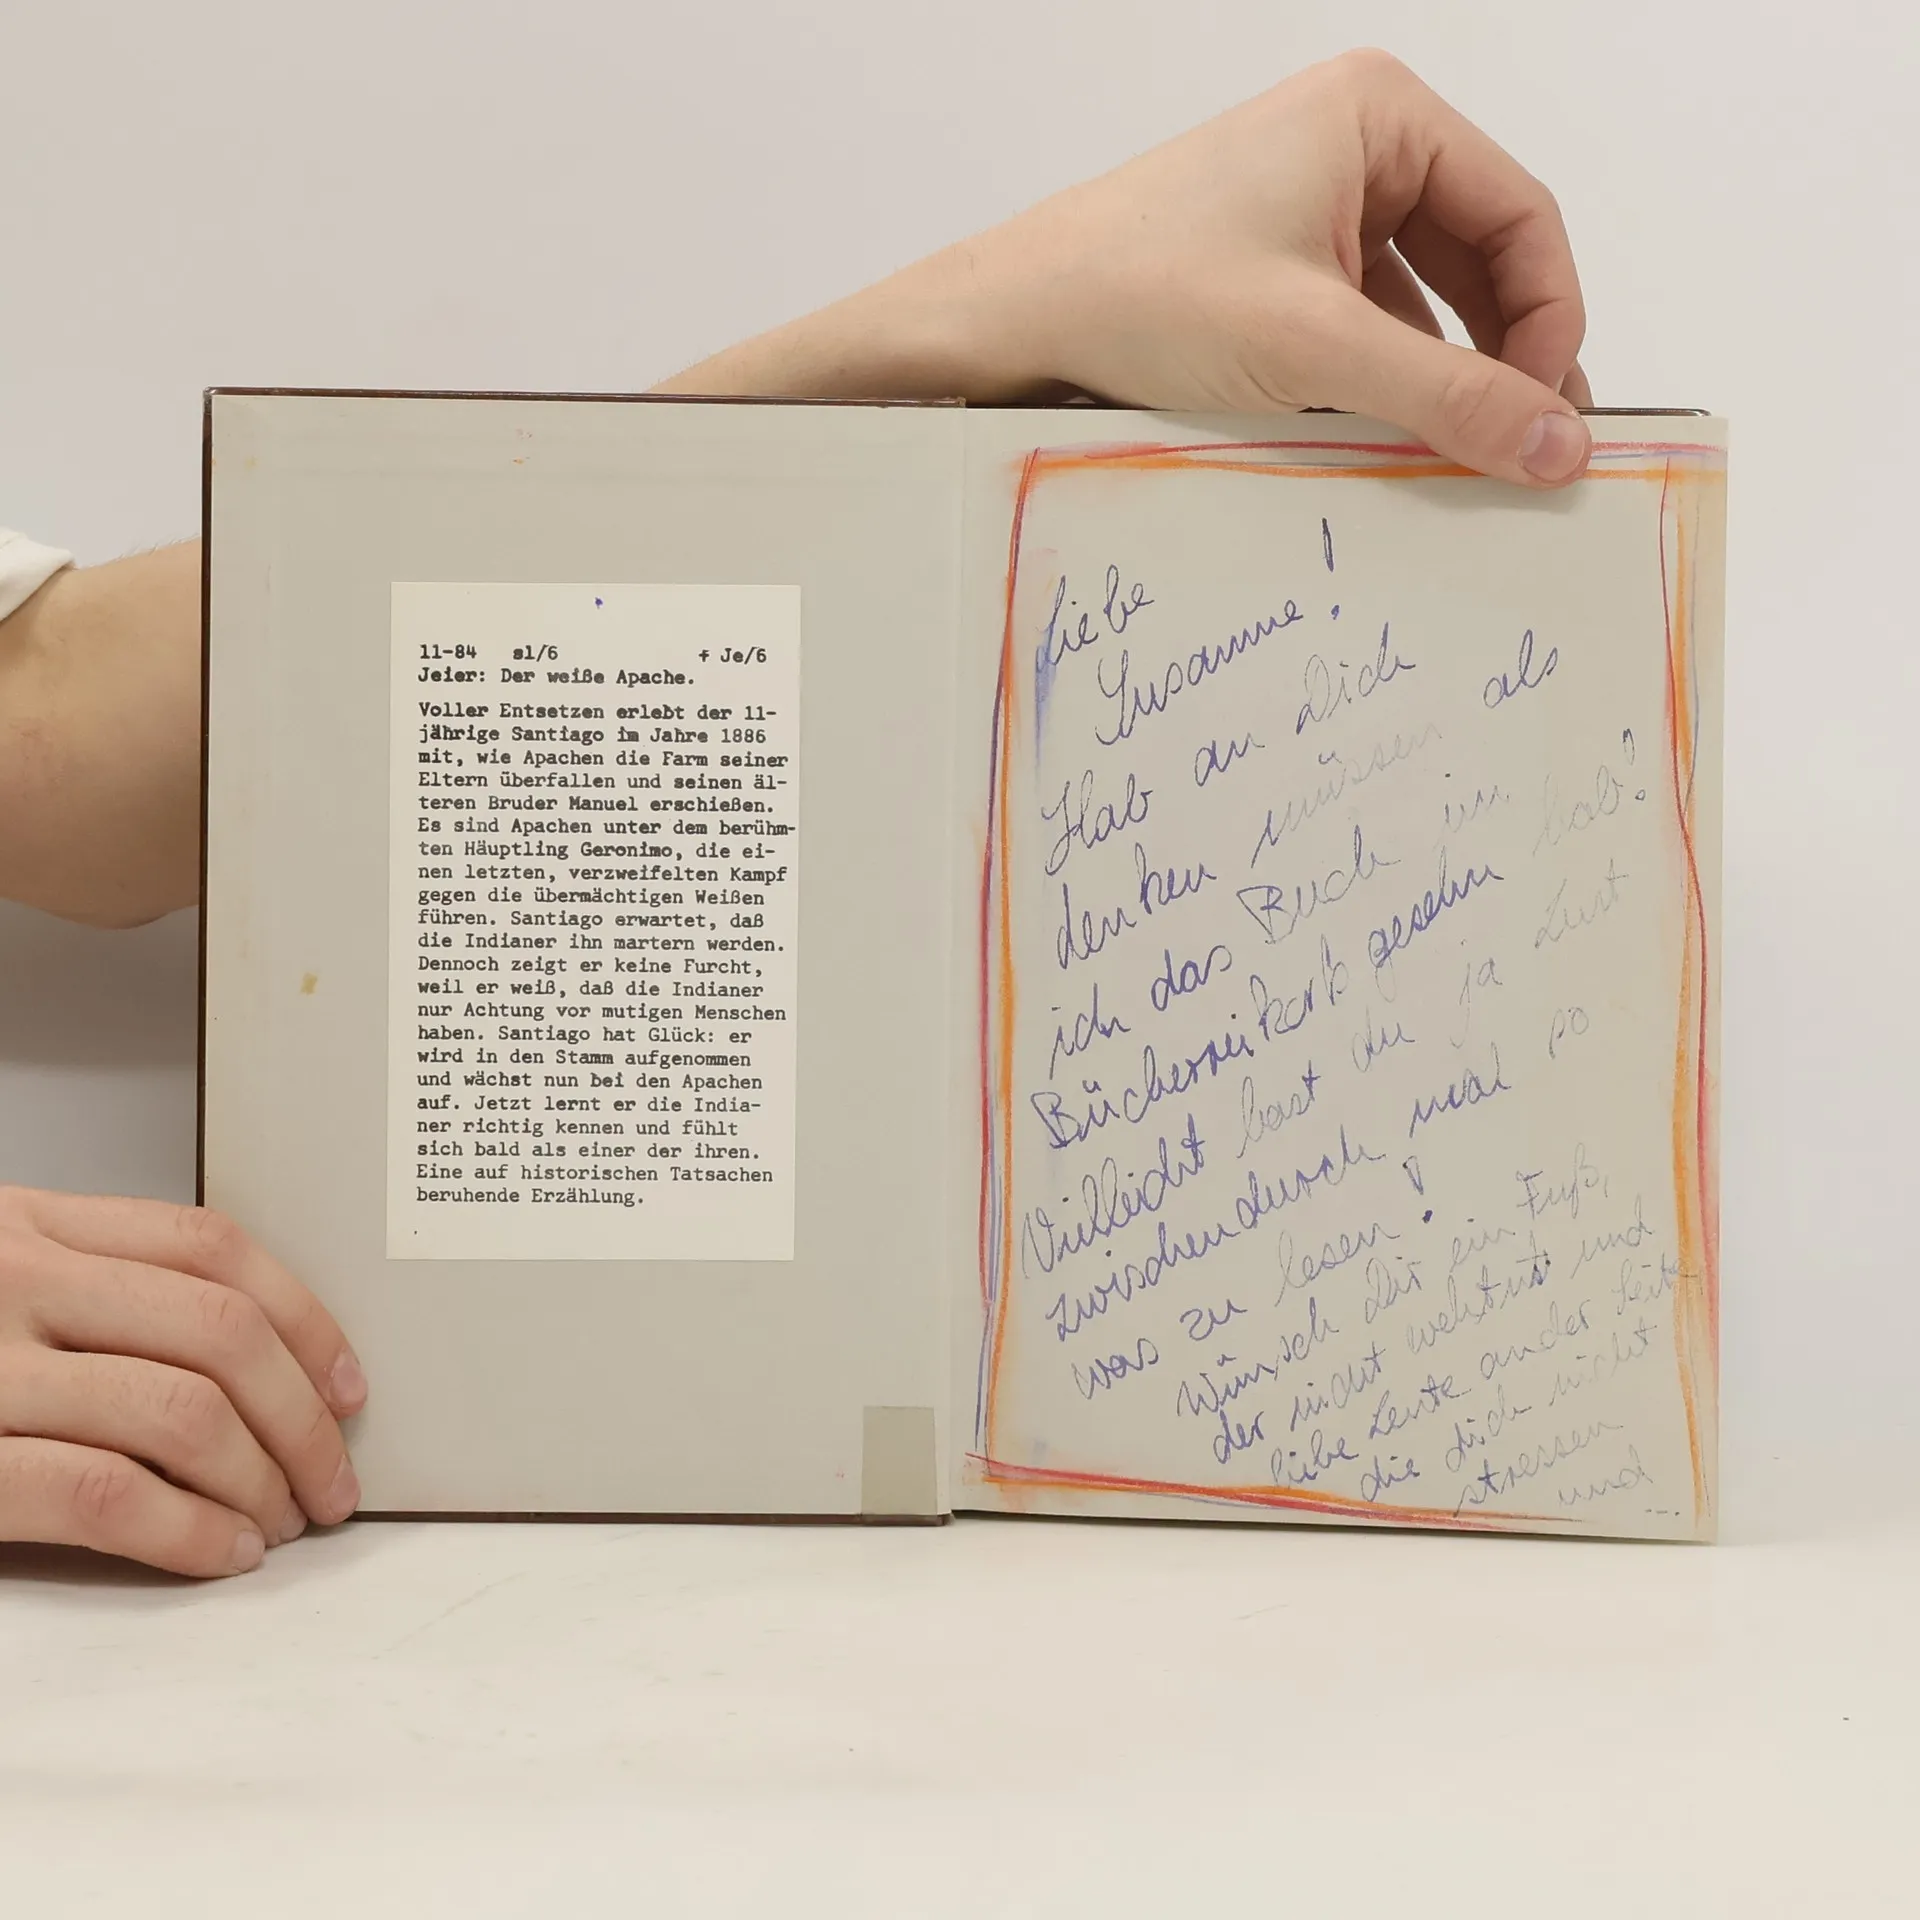 11-84 sl/6 + Je/6
Jeier: Der weiße Apache.
Voller Entsetzen erlebt der 11-
jährige Santiago im Jahre 1886
mit, wie Apachen die Farm seiner
Eltern überfallen und seinen äl-
teren Bruder Manuel erschießen.
Es sind Apachen unter dem berühm-
ten Häuptling Geronimo, die ei-
nen letzten, verzweifelten Kampf
gegen die übermächtigen Weißen
führen. Santiago erwartet, daß
die Indianer ihn martern werden.
Dennoch zeigt er keine Furcht,
weil er weiß, daß die Indianer
nur Achtung vor mutigen Menschen
haben. Santiago hat Glück: er
wird in den Stamm aufgenommen
und wächst nun bei den Apachen
auf. Jetzt lernt er die India-
ner richtig kennen und fühlt
sich bald als einer der ihren.
Eine auf historischen Tatsachen
beruhende Erzählung.
Liebe
Susanne!
Hab an Dich
denken müssen als
ich das Buch im
Büchereikorb gesehn hab!
Vielleicht hast du ja Lust
zwischendurch mal so
was zu lesen!
Wünsch Dir ein Fuß,
der nicht wehtut und
liebe Leute an der Seite
die dich nicht
stressen
und
...